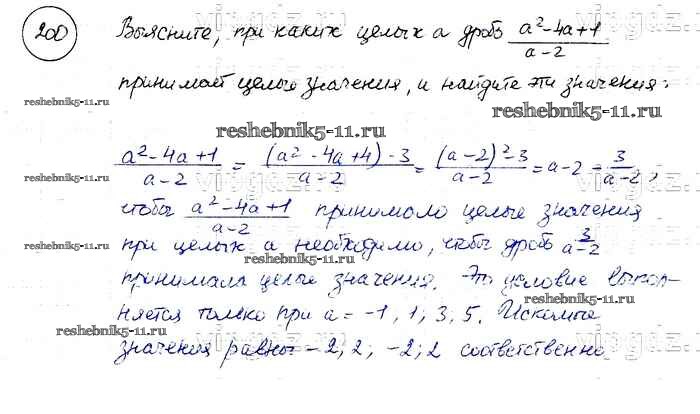 200 Выясните, при каких целых a дробь (a²-4a+1)/(a-2)
принимает целые значения, и найдите эти значения:
reshebnik5-11.ru
reshebnik5-11.ru
(a²-4a+1)/(a-2) = ((a²-4a+4)-3)/(a-2) = ((a-2)²-3)/(a-2) = a-2 - 3/(a-2),
reshebnik5-11.ru
чтобы (a²-4a+1)/(a-2) принимало целые значения
при целых a необходимо, чтобы дробь 3/(a-2)
reshebnik5-11.ru
reshebnik5-11.ru
принимала целые значения. Это условие выпол-
няется только при a = -1; 1; 3; 5. Искомые
reshebnik5-11.ru
reshebnik5-11.ru
значения равны -2; 2; -2; 2 соответственно